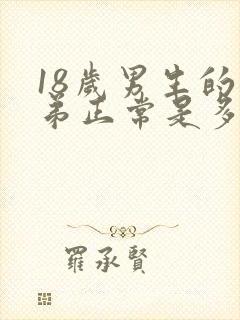 18歲男生的
弟正常是多
羅承賢